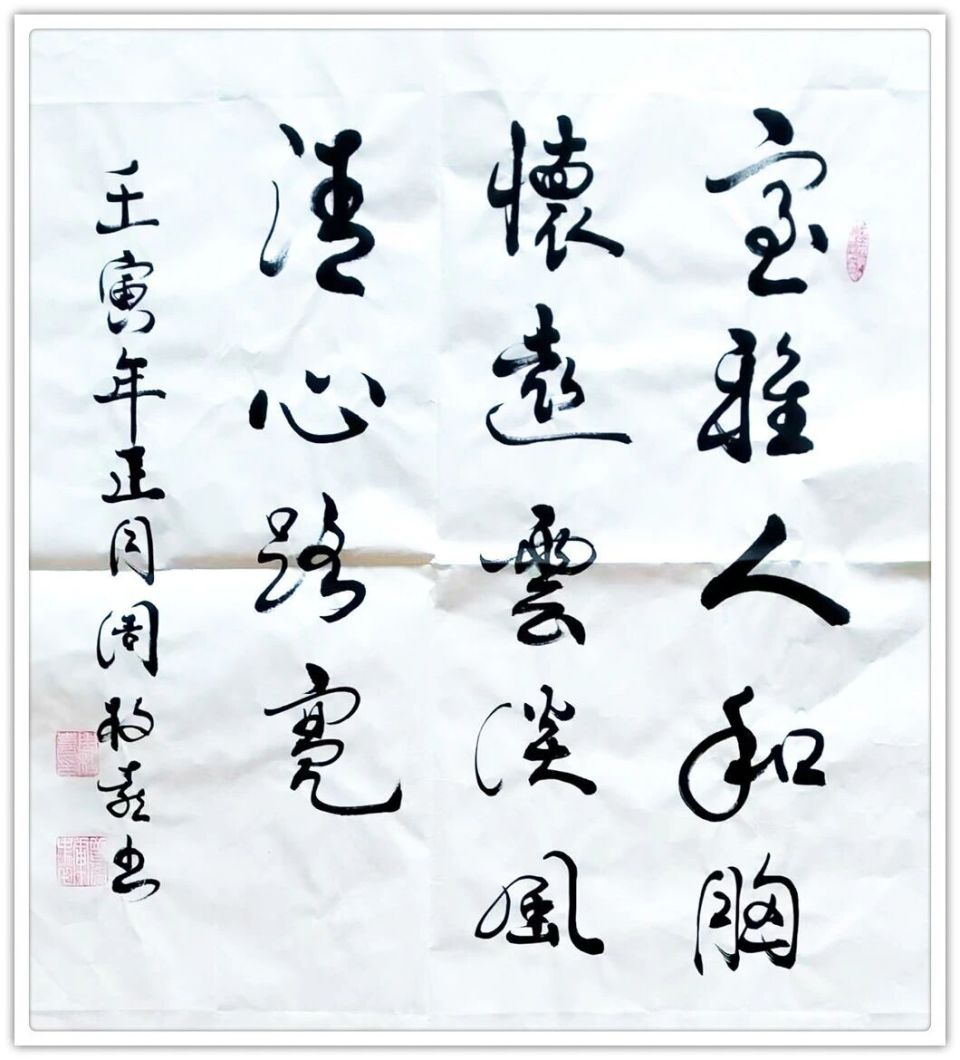 室雅人和胸
懷遠雲淡風
清心路亮
壬寅年正月周牧嘉书